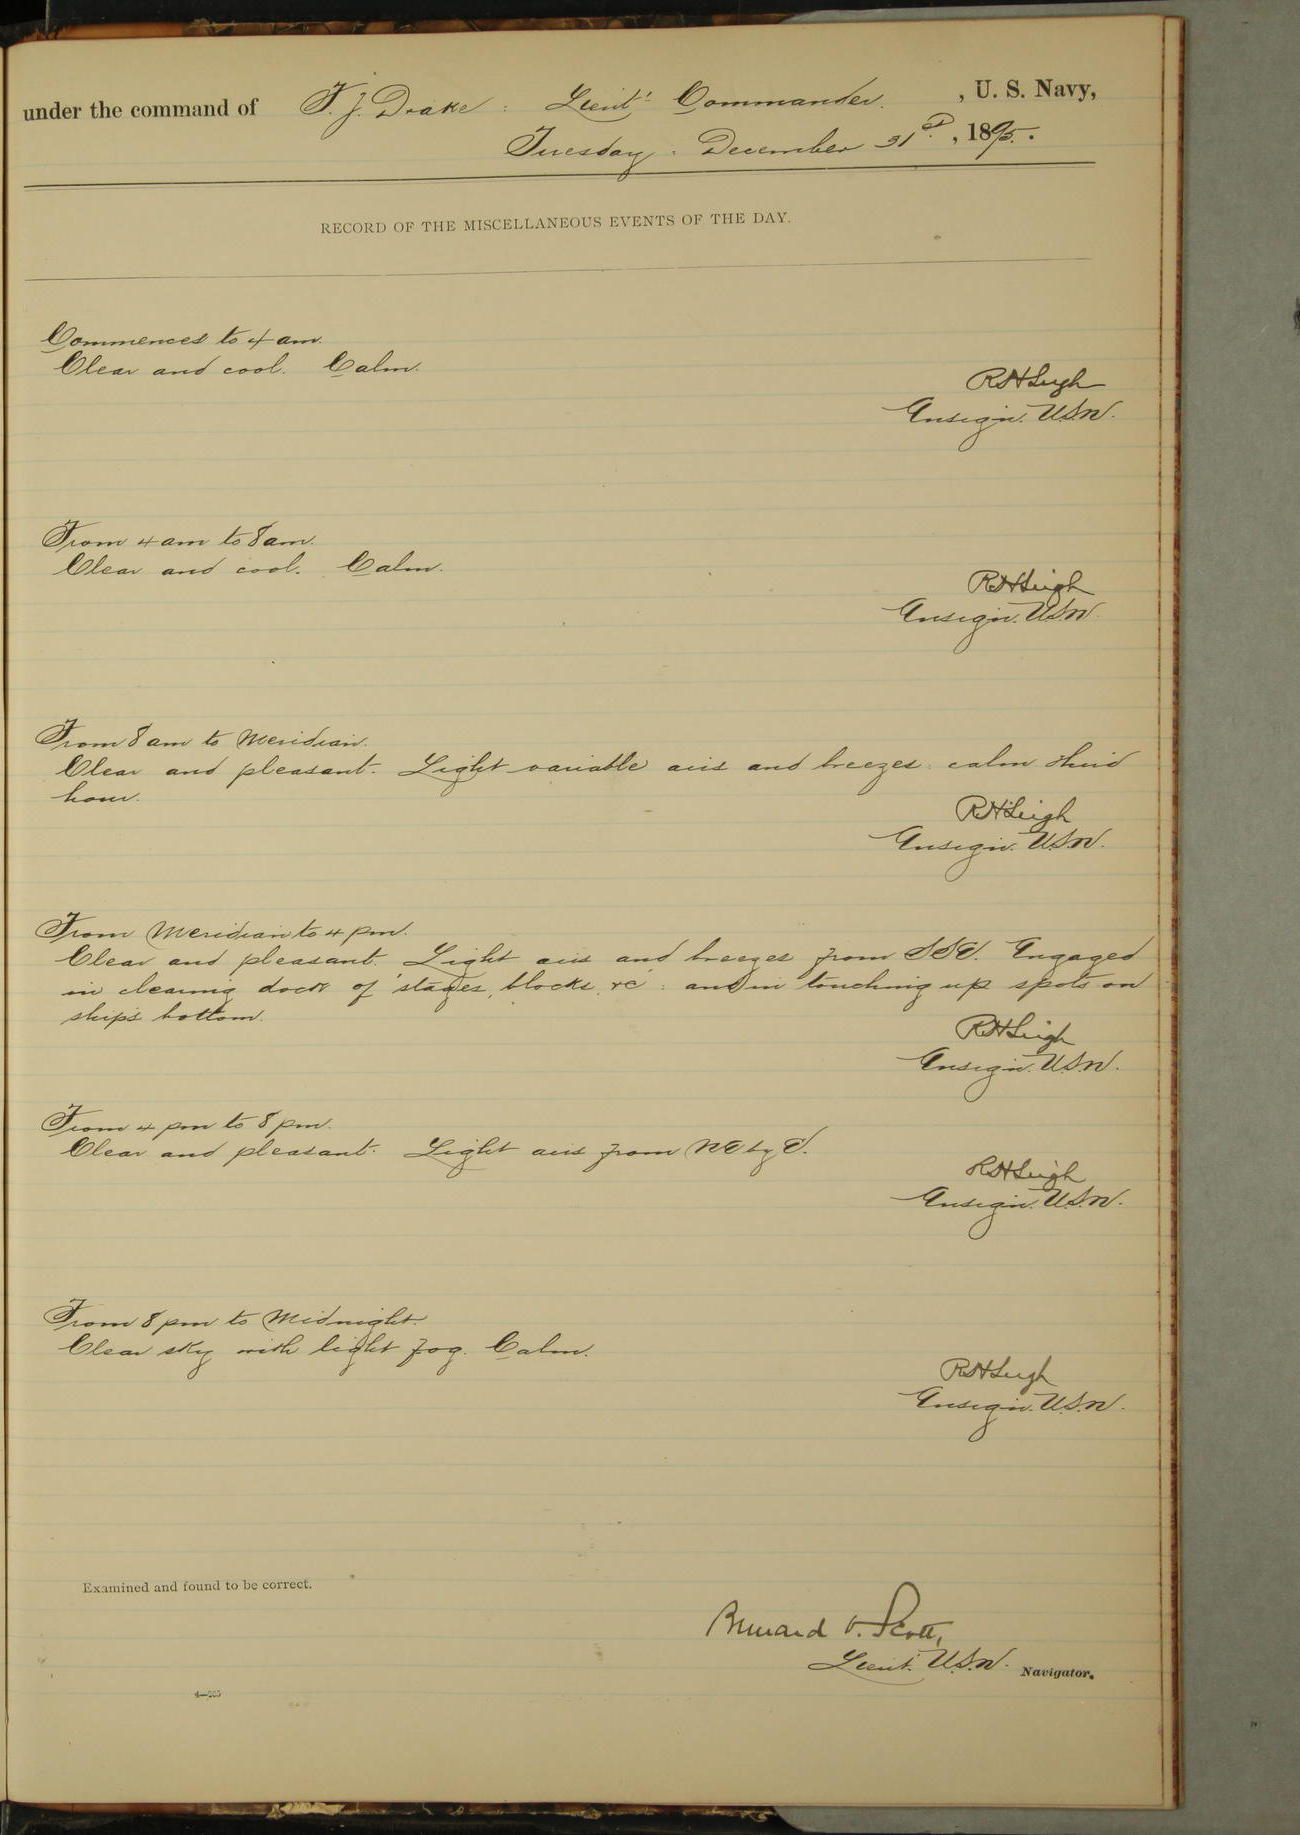 under the command of F. J. Drake : Lieut. Commander. , U. S. Navy,
Tuesday. December 31st, 1895.
RECORD OF THE MISCELLANEOUS EVENTS OF THE DAY.
Commences to 4 am.
Clear and cool. Calm.
R H Leigh
Ensign. U.S.N.
From 4 am to 8 am.
Clear and cool. Calm.
R H Leigh
Ensign. U.S.N.
From 8 am to Meridian.
Clear and pleasant. Light variable airs and breezes : calm third
hour.
R H Leigh
Ensign. U.S.N.
From Meridian to 4 pm.
Clear and pleasant. Light airs and breezes from SSE. Engaged
in clearing dock of stages, blocks, &c : and in touching up spots on
ship's bottom.
R H Leigh
Ensign. U.S.N.
From 4 pm to 8 pm.
Clear and pleasant. Light airs from NE by E.
R H Leigh
Ensign. U.S.N.
From 8 pm to Midnight.
Clear sky with light fog. Calm.
R H Leigh
Ensign. U.S.N.
Examined and found to be correct.
Bernard O. Scott,
Lieut. U.S.N. Navigator.